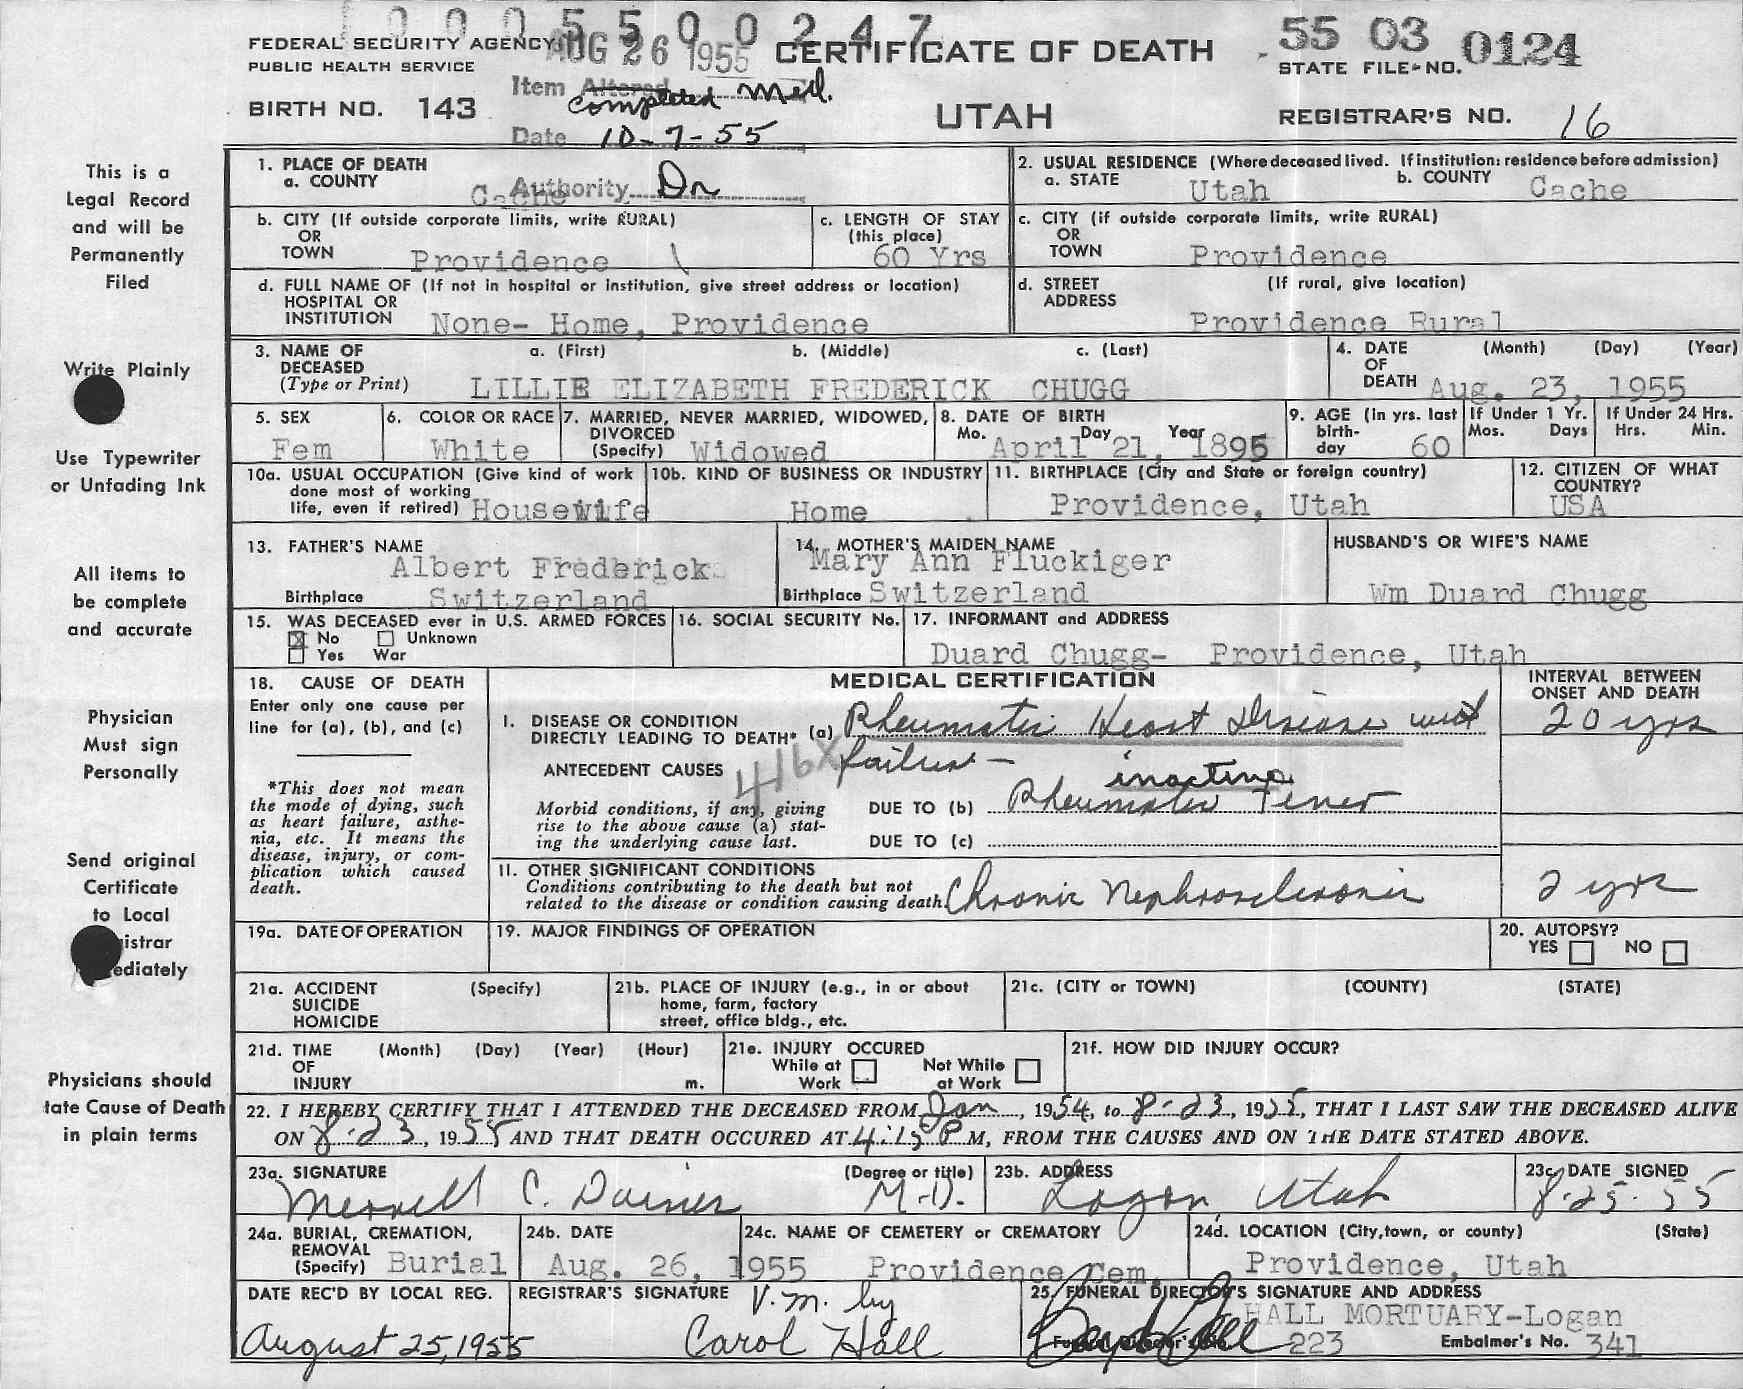 0 0 0 5 5 0 0 2 4 7
FEDERAL SECURITY AGENCY AUG 26 1955 CERTIFICATE OF DEATH 55 03 0124
PUBLIC HEALTH SERVICE STATE FILE NO.
Item Altered completed Med.
BIRTH NO. 143 UTAH REGISTRAR'S NO. 16
Date 10-7-55
Authority Dr
This is a
Legal Record
and will be
Permanently
Filed
Write Plainly
Use Typewriter
or Unfading Ink
All items to
be complete
and accurate
Physician
Must sign
Personally
Send original
Certificate
to Local
istrar
ediately
Physicians should
tate Cause of Death
in plain terms
1. PLACE OF DEATH
a. COUNTY Cache
2. USUAL RESIDENCE (Where deceased lived. If institution: residence before admission)
a. STATE Utah b. COUNTY Cache
b. CITY (If outside corporate limits, write RURAL)
OR
TOWN Providence
c. LENGTH OF STAY
(this place)
60 Yrs
c. CITY (if outside corporate limits, write RURAL)
OR
TOWN Providence
d. FULL NAME OF (If not in hospital or institution, give street address or location)
HOSPITAL OR
INSTITUTION None- Home, Providence
d. STREET (If rural, give location)
ADDRESS
Providence Rural
3. NAME OF a. (First) b. (Middle) c. (Last)
DECEASED
(Type or Print) LILLIE ELIZABETH FREDERICK CHUGG
4. DATE (Month) (Day) (Year)
OF
DEATH Aug. 23, 1955
5. SEX
Fem
6. COLOR OR RACE
White
7. MARRIED, NEVER MARRIED, WIDOWED,
DIVORCED
(Specify) Widowed
8. DATE OF BIRTH
Mo. Day Year
April 21, 1895
9. AGE (In yrs. last
birth-
day 60
If Under 1 Yr.
Mos. Days
If Under 24 Hrs.
Hrs. Min.
10a. USUAL OCCUPATION (Give kind of work
done most of working
life, even if retired) Housewife
10b. KIND OF BUSINESS OR INDUSTRY
Home
11. BIRTHPLACE (City and State or foreign country)
Providence, Utah
12. CITIZEN OF WHAT
COUNTRY?
USA
13. FATHER'S NAME
Albert Frederick
Birthplace Switzerland
14. MOTHER'S MAIDEN NAME
Mary Ann Fluckiger
Birthplace Switzerland
HUSBAND'S OR WIFE'S NAME
Wm Duard Chugg
15. WAS DECEASED ever in U.S. ARMED FORCES
No Unknown
Yes War
16. SOCIAL SECURITY No.
17. INFORMANT and ADDRESS
Duard Chugg- Providence, Utah
18. CAUSE OF DEATH
Enter only one cause per
line for (a), (b), and (c)
*This does not mean
the mode of dying, such
as heart failure, asthe-
nia, etc. It means the
disease, injury, or com-
plication which caused
death.
MEDICAL CERTIFICATION
INTERVAL BETWEEN
ONSET AND DEATH
I. DISEASE OR CONDITION
DIRECTLY LEADING TO DEATH* (a) Rheumatic Heart Disease with 20 yrs
failure -
ANTECEDENT CAUSES 416X
inactive
Morbid conditions, if any, giving DUE TO (b) Rheumatic Fever
rise to the above cause (a) stat-
ing the underlying cause last. DUE TO (c)
II. OTHER SIGNIFICANT CONDITIONS
Conditions contributing to the death but not
related to the disease or condition causing death. Chronic Nephrosclerosis 2 yrs
19a. DATE OF OPERATION 19. MAJOR FINDINGS OF OPERATION
20. AUTOPSY?
YES NO
21a. ACCIDENT (Specify)
SUICIDE
HOMICIDE
21b. PLACE OF INJURY (e.g., in or about
home, farm, factory
street, office bldg., etc.
21c. (CITY or TOWN) (COUNTY) (STATE)
21d. TIME (Month) (Day) (Year) (Hour)
OF
INJURY m.
21e. INJURY OCCURED
While at Not While
Work at Work
21f. HOW DID INJURY OCCUR?
22. I HEREBY CERTIFY THAT I ATTENDED THE DECEASED FROM Jan, 1954, to 8-23, 1955, THAT I LAST SAW THE DECEASED ALIVE
ON 8-23, 1955 AND THAT DEATH OCCURED AT 4:15 P M, FROM THE CAUSES AND ON THE DATE STATED ABOVE.
23a. SIGNATURE (Degree or title)
Merrell C. Daines M.D.
23b. ADDRESS
Logan, Utah
23c. DATE SIGNED
8-25-55
24a. BURIAL, CREMATION,
REMOVAL
(Specify) Burial
24b. DATE
Aug. 26, 1955
24c. NAME OF CEMETERY or CREMATORY
Providence Cem.
24d. LOCATION (City, town, or county) (State)
Providence, Utah
DATE REC'D BY LOCAL REG.
August 25, 1955
REGISTRAR'S SIGNATURE V.M. by
Carol Hall
25. FUNERAL DIRECTOR'S SIGNATURE AND ADDRESS
HALL MORTUARY-Logan
223 Embalmer's No. 341